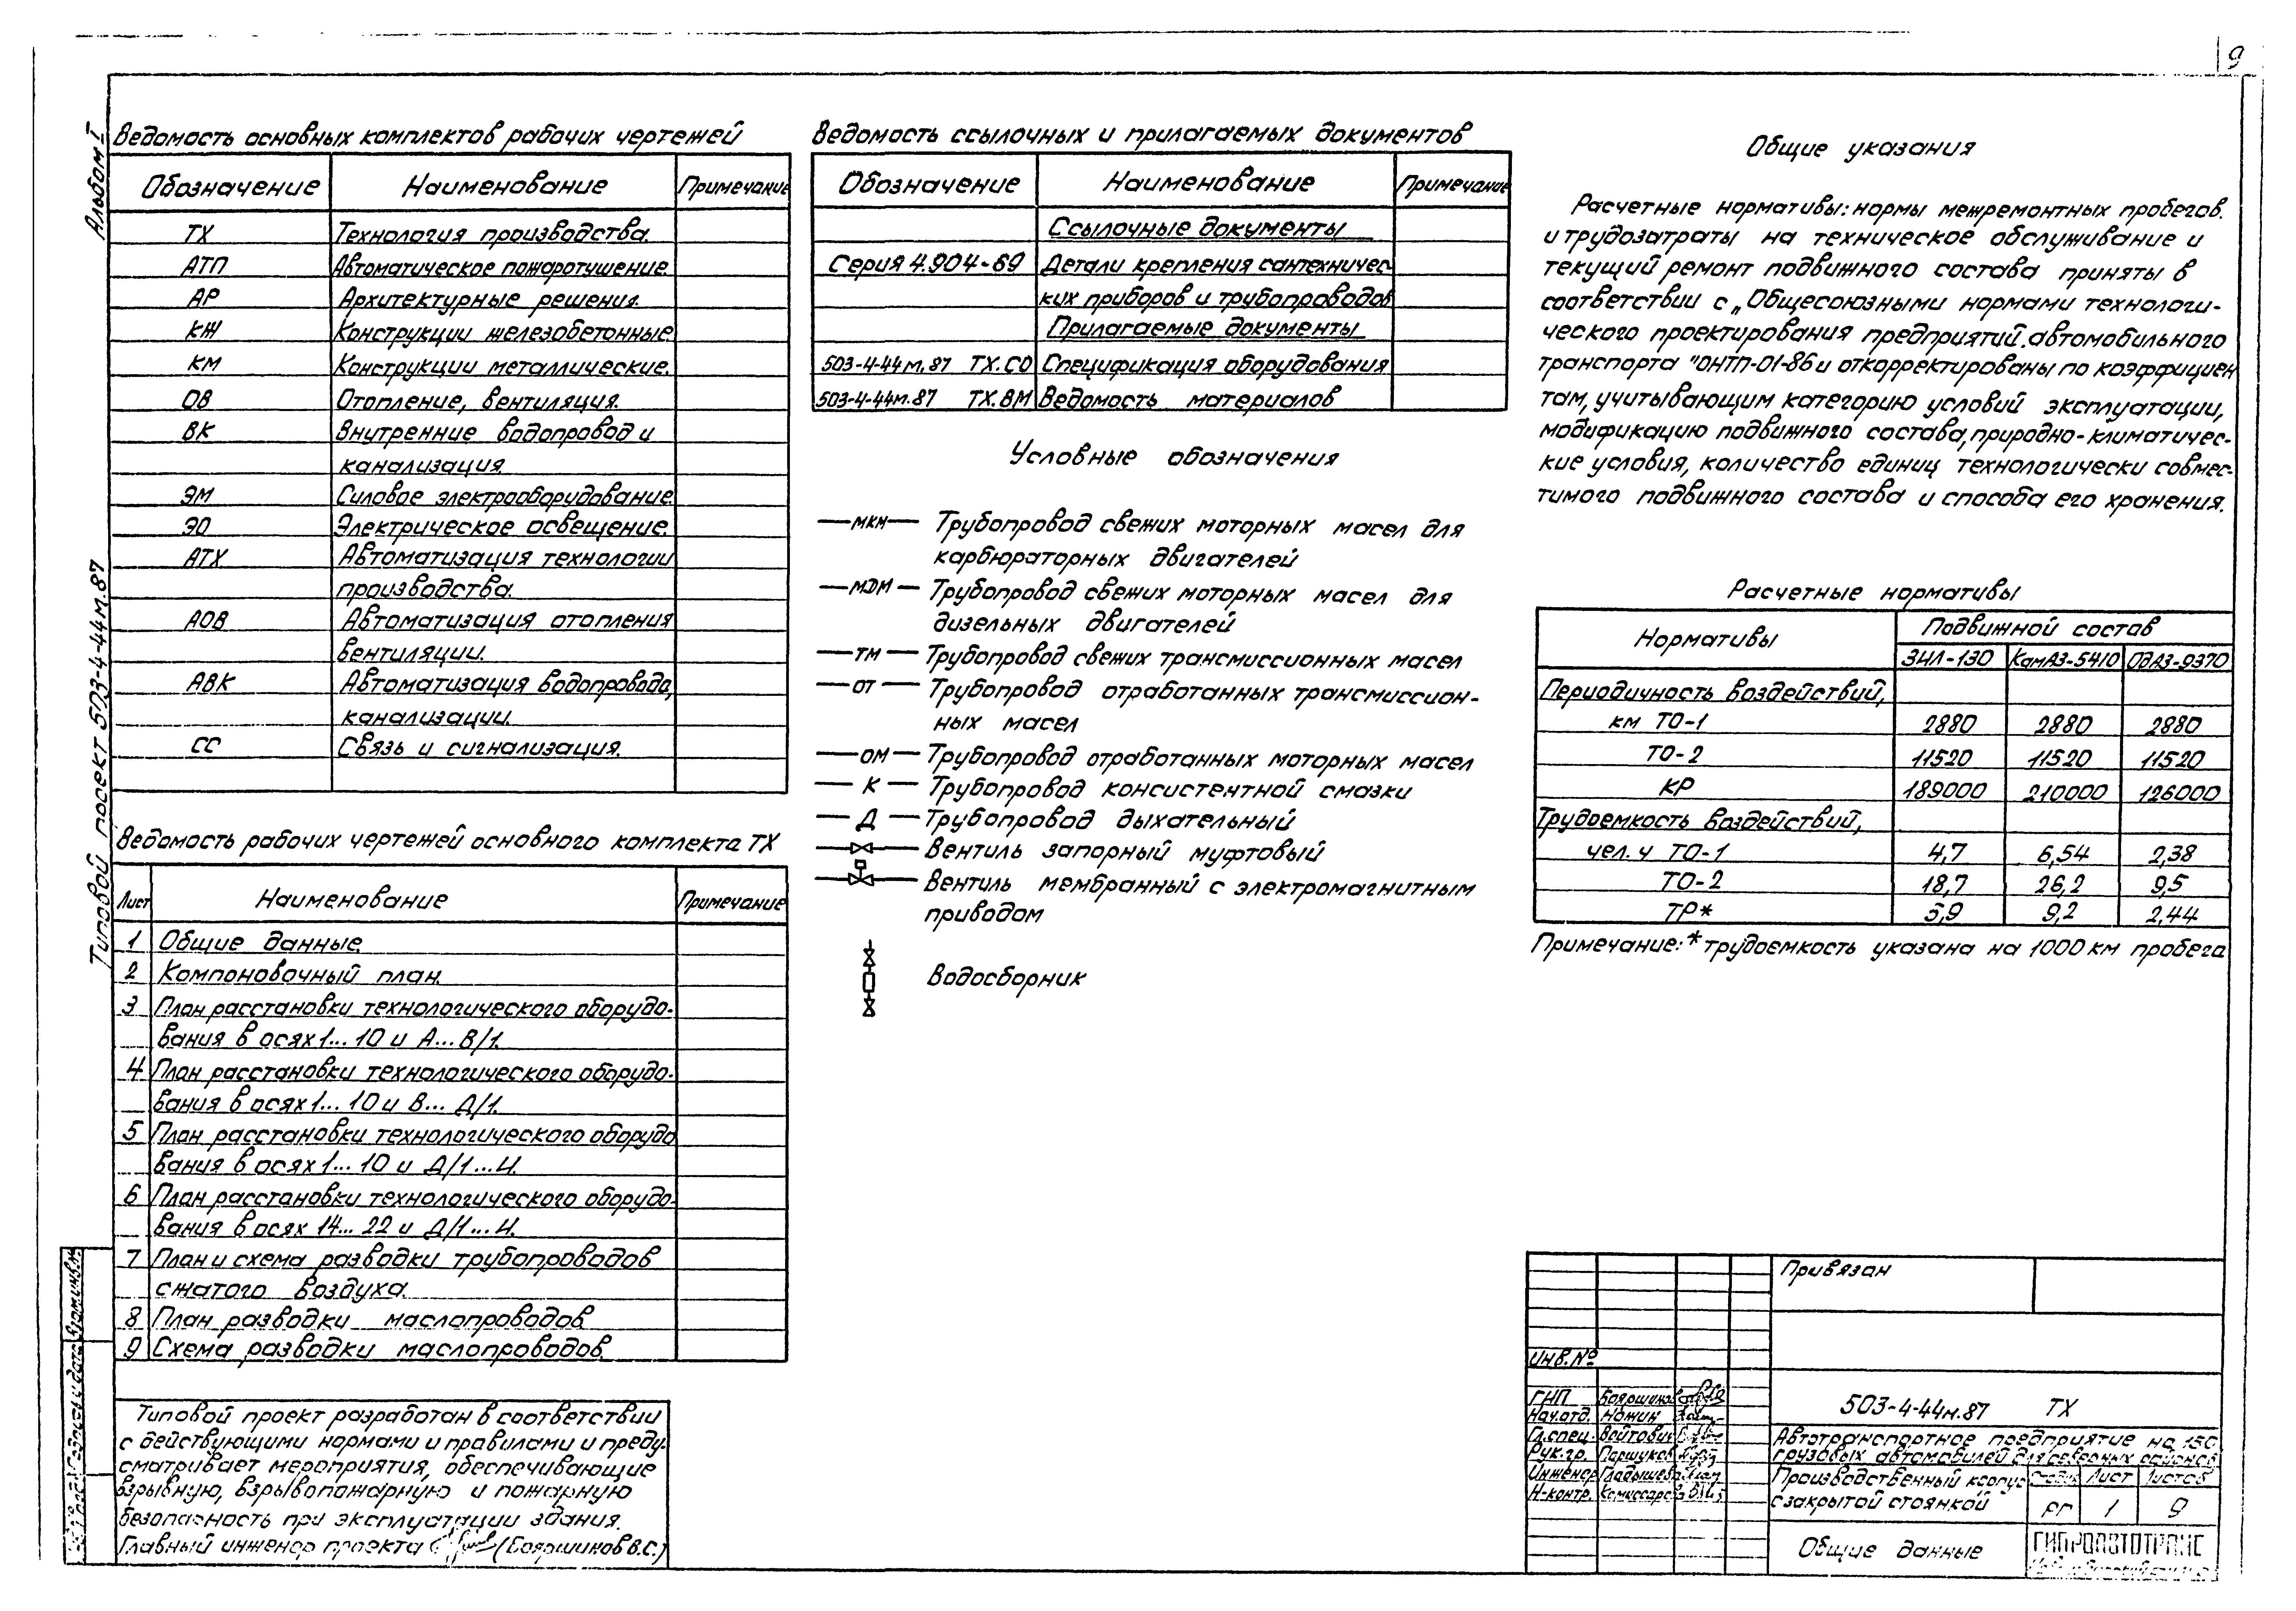 9
Альбом I
Типовой проект 503-4-44м.87
Ведомость основных комплектов рабочих чертежей
Обозначение Наименование Примечание
ТХ Технология производства.
АТП Автоматическое пожаротушение
АР Архитектурные решения.
КЖ Конструкции железобетонные
КМ Конструкции металлические.
ОВ Отопление, вентиляция.
ВК Внутренние водопровод и
канализация.
ЭМ Силовое электрооборудование.
ЭО Электрическое освещение.
АТХ Автоматизация технологии
производства.
АОВ Автоматизация отопления
вентиляции.
АВК Автоматизация водопровода,
канализации.
СС Связь и сигнализация.
Ведомость рабочих чертежей основного комплекта ТХ
Лист Наименование Примечание
1 Общие данные.
2 Компоновочный план.
3 План расстановки технологического оборудо-
вания в осях 1...10 и А...В/1.
4 План расстановки технологического оборудо-
вания в осях 1...10 и В...Д/1.
5 План расстановки технологического оборудо
вания в осях 1...10 и Д/1...И.
6 План расстановки технологического оборудо-
вания в осях 14...22 и Д/1...И.
7 План и схема разводки трубопроводов
сжатого воздуха.
8 План разводки маслопроводов
9 Схема разводки маслопроводов.
Типовой проект разработан в соответствии
с действующими нормами и правилами и преду-
сматривает мероприятия, обеспечивающие
взрывную, взрывопожарную и пожарную
безопасность при эксплуатации здания.
Главный инженер проекта (Бояршинов В.С.)
Ведомость ссылочных и прилагаемых документов
Обозначение Наименование Примечание
Ссылочные документы
Серия 4.904-69 Детали крепления сантехничес
ких приборов и трубопроводов
Прилагаемые документы
503-4-44м.87 ТХ.СО Спецификация оборудования
503-4-44м.87 ТХ.ВМ Ведомость материалов
Условные обозначения
МКМ Трубопровод свежих моторных масел для
карбюраторных двигателей
МДМ Трубопровод свежих моторных масел для
дизельных двигателей
ТМ Трубопровод свежих трансмиссионных масел
ОТ Трубопровод отработанных трансмиссион-
ных масел
ОМ Трубопровод отработанных моторных масел
К Трубопровод консистентной смазки
Д Трубопровод дыхательный
Вентиль запорный муфтовый
Вентиль мембранный с электромагнитным
приводом
Водосборник
Общие указания
Расчетные нормативы: нормы межремонтных пробегов.
и трудозатраты на техническое обслуживание и
текущий ремонт подвижного состава приняты в
соответствии с „Общесоюзными нормами технологи-
ческого проектирования предприятий. автомобильного
транспорта" ОНТП-01-86 и откорректированы по коэффициен
там, учитывающим категорию условий эксплуатации,
модификацию подвижного состава, природно-климатичес-
кие условия, количество единиц технологически совмес-
тимого подвижного состава и способа его хранения.
Расчетные нормативы
Нормативы Подвижной состав
ЗИЛ-130 КамАЗ-5410 ОдАЗ-9370
Периодичность воздействий,
км ТО-1 2880 2880 2880
ТО-2 11520 11520 11520
КР 189000 210000 126000
Трудоемкость воздействий,
чел.ч ТО-1 4,7 6,54 2,38
ТО-2 18,7 26,2 9,5
ТР* 5,9 9,2 2,44
Примечание: * трудоемкость указана на 1000 км пробега
Привязан
Инв.№
ГИП Бояршинов
Нач.отд. Ножин
Гл.спец. Войтович
Рук.гр. Паршуков
Инженер Гладышева
Н-контр.
503-4-44м.87 ТХ
Автотранспортное предприятие на 150
грузовых автомобилей для северных районов
Производственный корпус
с закрытой стоянкой
Стадия Лист Листов
РП 1 9
Общие данные
ГИПРОАВТОТРАНС